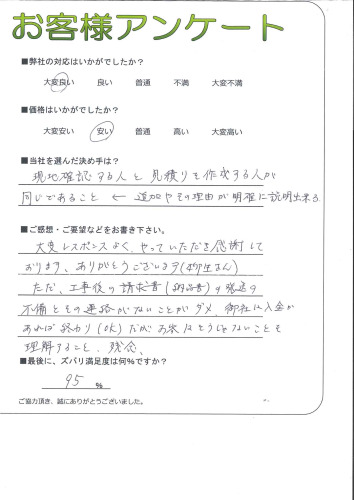 お客様アンケート
■弊社の対応はいかがでしたか？
大変良い 良い 普通 不満 大変不満
■価格はいかがでしたか？
大変安い 安い 普通 高い 大変高い
■当社を選んだ決め手は？
現地確認する人と見積りを作成する人が
同じであること ← 追加やその理由が明確に説明出来る
■ご感想・ご要望などをお書き下さい。
大変レスポンスよく、やっていただき感謝して
おります、ありがとうございます(柳生さん)
ただ、工事後の請求書(納品書)の発送の
不備とその連絡がないことがダメ、御社は入金が
あれば終わり(OK)だがお客はそうじゃないことも
理解すること、残念、
■最後に、ズバリ満足度は何%ですか？
95 %
ご協力頂き、誠にありがとうございました。